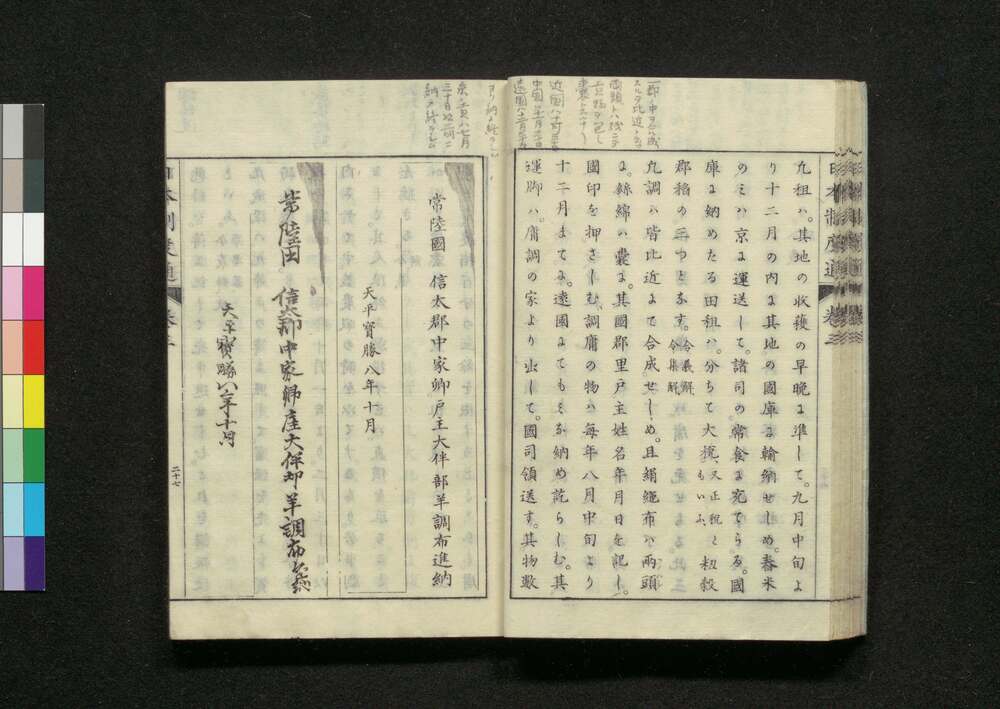 凢租ハ。其地の收穫の早晩に準して。九月中旬よ
り十二月の內に其地の國庫に輸納せしめ。舂米
のミハ京に運送して。諸司の常食に宛てらる。國
庫に納めたる田租ハ。分ちて大稅、又正稅ともいふ、と籾穀
郡稻の三つとなす。令義解、令集解、
凢調ハ皆比近にて合成せしめ。且絹絁布ハ兩頭
に。絲綿ハ囊に。其國郡里戶主姓名年月日を記し。
國印を押さしむ、調庸の物ハ每年八月中旬より
十二月まてに。遠國にてもミな納め訖らしむ。其
運脚ハ。庸調の家より出して。國司領送す。其物數
常陸國 信太郡中家郷戶主大伴部羊調布進納
天平寶勝八年十月
常陸國 信太郡中家郷戶主大伴部羊調布進納
天平寶勝八年十月
二十七
日本制度通 卷二